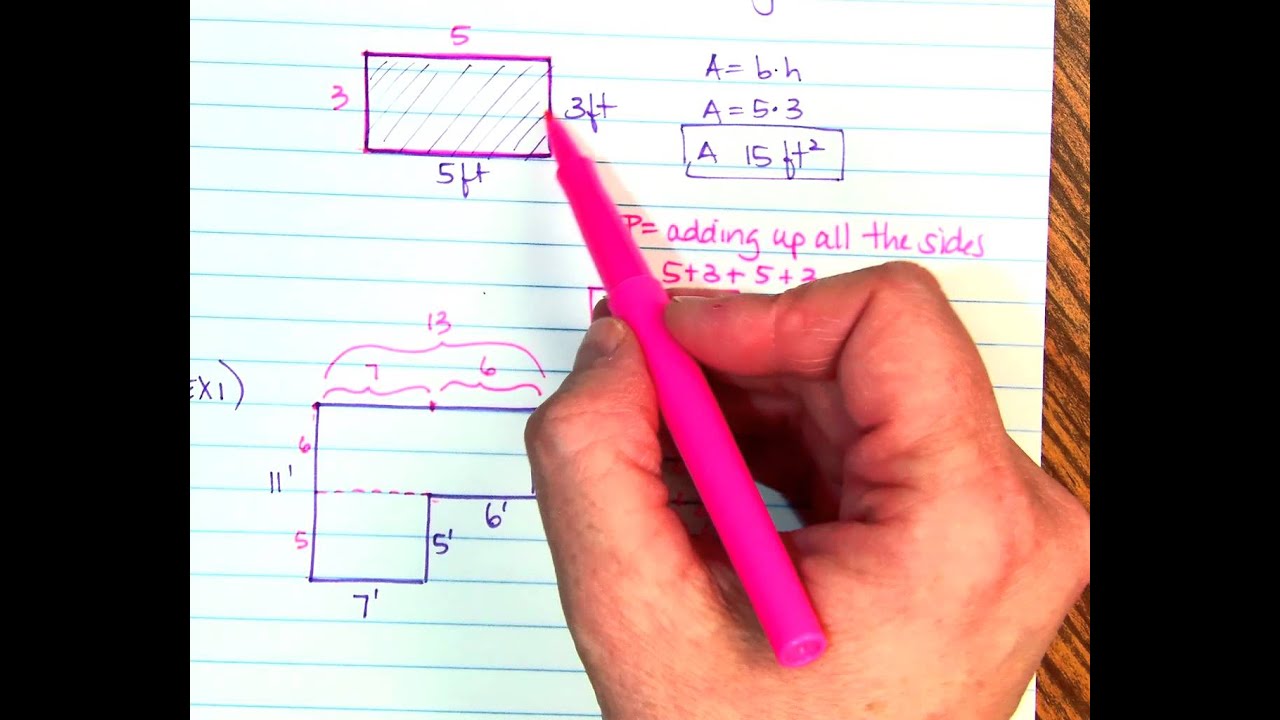 5
3
3ft
5ft
A = b·h
A = 5·3
A 15 ft²
P = adding up all the sides
5+3+5+3
EX1)
13
7 6
6
11'
5
6'
5'
7'